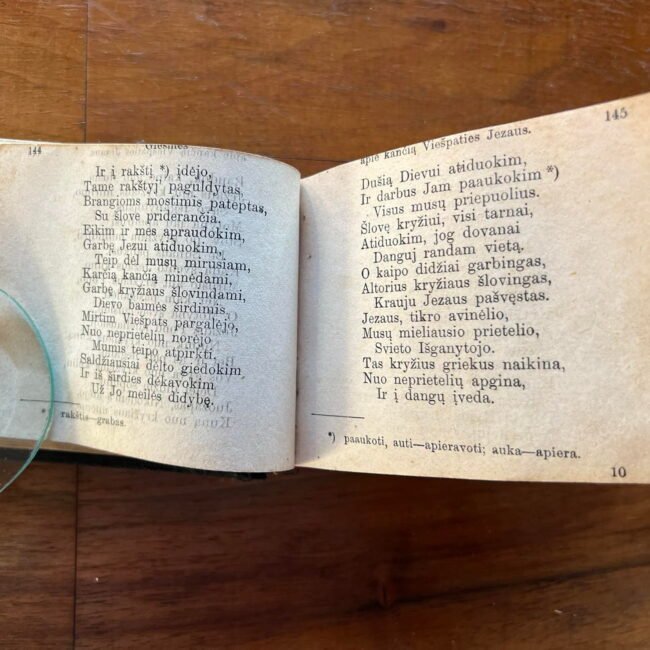 144
Giesmės
Ir į rakštį *) įdėjo,
Tame rakštyj paguldytas,
Brangioms mostimis pateptas,
Su šlove priderančia.
Eikim ir mes apraudokim,
Garbę Jezui atiduokim,
Teip dėl musų mirusiam,
Karčią kančią minėdami,
Garbę kryžiaus šlovindami,
Dievo baimės širdimis.
Mirtim Viešpats pargalėjo,
Nuo neprietelių norėjo
Mumis teipo atpirkti.
Saldžiausiai dėlto giedokim
Ir iš širdies dėkavokim
Už Jo meilės didybę.
* rakštis—grabas.
145
apie kančią Viešpaties Jezaus.
Dušią Dievui atiduokim,
Ir darbus Jam paaukokim *)
Visus musų priepuolius.
Šlovę kryžiui, visi tarnai,
Atiduokim, jog dovanai
Danguj randam vietą.
O kaipo didžiai garbingas,
Altorius kryžiaus šlovingas,
Krauju Jezaus pašvęstas.
Jezaus, tikro avinėlio,
Musų mieliausio prietelio,
Svieto Išganytojo.
Tas kryžius griekus naikina,
Nuo neprietelių apgina,
Ir į dangų įveda.
*) paaukoti, auti—apieravoti; auka—apiera.
10